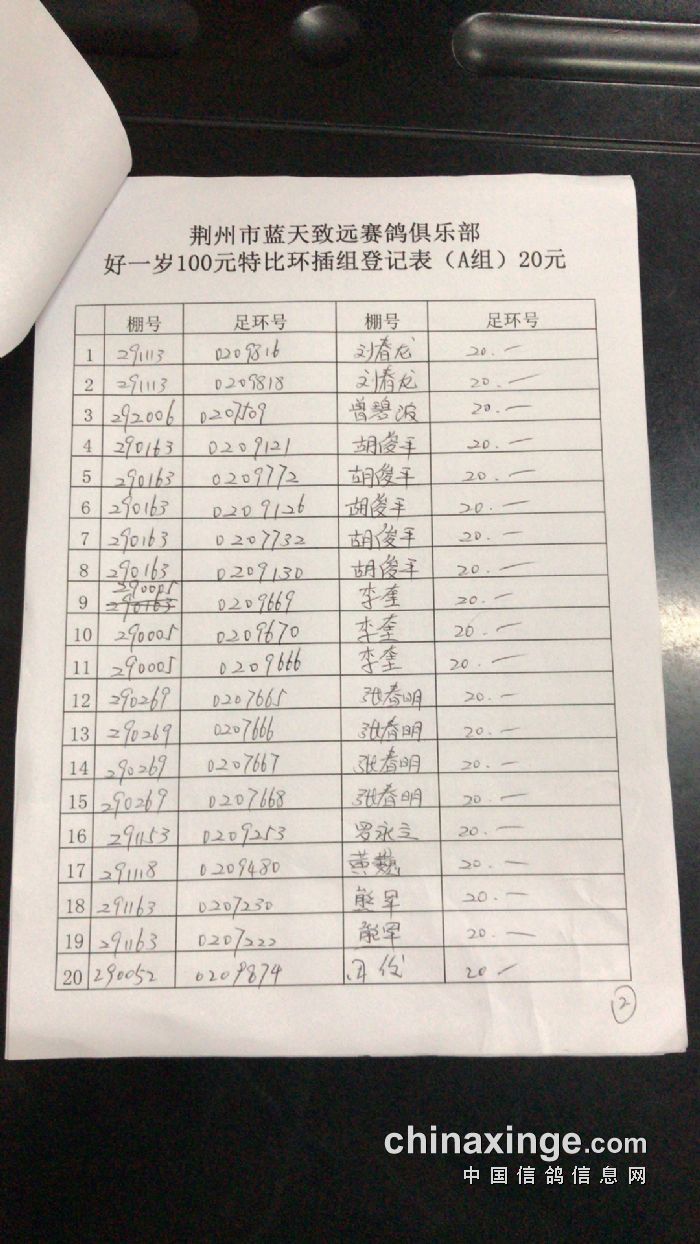 荆州市蓝天致远赛鸽俱乐部
好一岁100元特比环插组登记表（A组）20元
棚号 足环号 棚号 足环号
1 291113 0209816 刘春龙 20.—
2 291113 0209818 刘春龙 20.—
3 292006 0207509 曾碧波 20.—
4 290163 0209121 胡俊平 20.—
5 290163 0209772 胡俊平 20.—
6 290163 0209126 胡俊平 20.—
7 290163 0207732 胡俊平 20.—
8 290163 0209130 胡俊平 20.—
290005
9 290163 0209669 李奎 20.—
10 290005 0209670 李奎 20.—
11 290005 0209666 李奎 20.—
12 290269 0207665 张春明 20.—
13 290269 0207666 张春明 20.—
14 290269 0207667 张春明 20.—
15 290269 0207668 张春明 20.—
16 291153 0209253 罗永立 20.—
17 291118 0209480 黄巍 20.—
18 291163 0207230 熊罕 20.—
19 291163 0207222 熊罕 20.—
20 290052 0209874 20—
2
chinaxinge.com
中国信鸽信息网